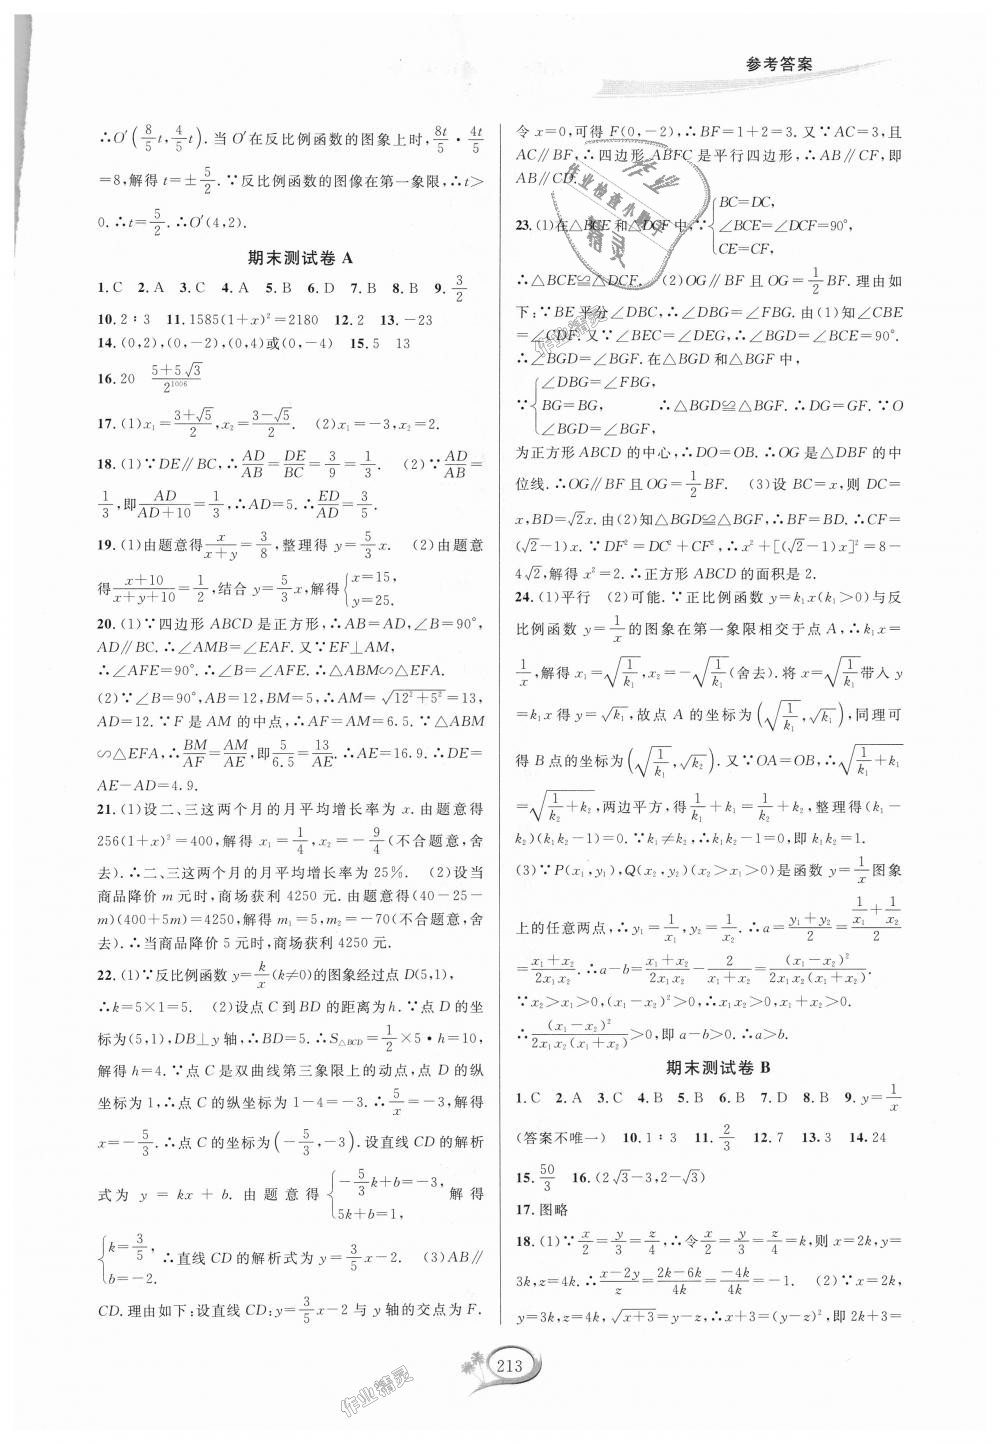 参考答案
∴O′(8/5t,4/5t).当 O′在反比例函数的图象上时,8t/5·4t/5
=8,解得 t=±5/2.∵反比例函数的图像在第一象限,∴t>
0.∴t=5/2.∴O′(4,2).
期末测试卷 A
1.C 2.A 3.C 4.A 5.B 6.D 7.B 8.B 9.3/2
10.2∶3 11.1585(1+x)²=2180 12.2 13.-23
14.(0,2),(0,-2),(0,4)或(0,-4) 15.5 13
16.20 (5+5√3)/2¹⁰⁰⁶
17.(1)x₁=(3+√5)/2,x₂=(3-√5)/2. (2)x₁=-3,x₂=2.
18.(1)∵DE∥BC,∴AD/AB=DE/BC=3/9=1/3. (2)∵AD/AB=
1/3,即AD/(AD+10)=1/3,∴AD=5.∴ED/AD=3/5.
19.(1)由题意得x/(x+y)=3/8,整理得 y=5/3x. (2)由题意
得(x+10)/(x+y+10)=1/2,结合 y=5/3x,解得{x=15, y=25.
20.(1)∵四边形 ABCD 是正方形,∴AB=AD,∠B=90°,
AD∥BC.∴∠AMB=∠EAF.又∵EF⊥AM,
∴∠AFE=90°.∴∠B=∠AFE.∴△ABM∽△EFA.
(2)∵∠B=90°,AB=12,BM=5,∴AM=√(12²+5²)=13,
AD=12.∵F 是 AM 的中点,∴AF=AM=6.5.∵△ABM
∽△EFA,∴BM/AF=AM/AE,即5/6.5=13/AE.∴AE=16.9.∴DE=
AE-AD=4.9.
21.(1)设二、三这两个月的月平均增长率为 x.由题意得
256(1+x)²=400,解得 x₁=1/4,x₂=-9/4(不合题意,舍
去).∴二、三这两个月的月平均增长率为 25%. (2)设当
商品降价 m 元时,商场获利 4250 元.由题意得(40-25-
m)(400+5m)=4250,解得 m₁=5,m₂=-70(不合题意,舍
去).∴当商品降价 5 元时,商场获利 4250 元.
22.(1)∵反比例函数 y=k/x(k≠0)的图象经过点 D(5,1),
∴k=5×1=5. (2)设点 C 到 BD 的距离为 h.∵点 D 的坐
标为(5,1),DB⊥y 轴,∴BD=5.∴S△BCD=1/2×5·h=10,
解得 h=4.∵点 C 是双曲线第三象限上的动点,点 D 的纵
坐标为 1,∴点 C 的纵坐标为 1-4=-3.∴5/x=-3,解得
x=-5/3.∴点 C 的坐标为(-5/3,-3).设直线 CD 的解析
式为 y=kx+b.由题意得{-5/3k+b=-3, 5k+b=1, 解得
{k=3/5, b=-2. ∴直线 CD 的解析式为 y=3/5x-2. (3)AB∥
CD.理由如下:设直线 CD:y=3/5x-2 与 y 轴的交点为 F.
令 x=0,可得 F(0,-2),∴BF=1+2=3.又∵AC=3,且
AC∥BF,∴四边形 ABFC 是平行四边形,∴AB∥CF,即
AB∥CD.
23.(1)在△BCE 和△DCF 中,∵{BC=DC, ∠BCE=∠DCF=90°, CE=CF,
∴△BCE≌△DCF. (2)OG∥BF 且 OG=1/2BF.理由如
下:∵BE 平分∠DBC,∴∠DBG=∠FBG.由(1)知∠CBE
=∠CDF.又∵∠BEC=∠DEG,∴∠BGD=∠BCE=90°.
∴∠BGD=∠BGF.在△BGD 和△BGF 中,
∵{∠DBG=∠FBG, BG=BG, ∠BGD=∠BGF, ∴△BGD≌△BGF.∴DG=GF.∵O
为正方形 ABCD 的中心,∴DO=OB.∴OG 是△DBF 的中
位线.∴OG∥BF 且 OG=1/2BF. (3)设 BC=x,则 DC=
x,BD=√2x.由(2)知△BGD≌△BGF,∴BF=BD.∴CF=
(√2-1)x.∵DF²=DC²+CF²,∴x²+[(√2-1)x]²=8-
4√2,解得 x²=2.∴正方形 ABCD 的面积是 2.
24.(1)平行 (2)可能.∵正比例函数 y=k₁x(k₁>0)与反
比例函数 y=1/x的图象在第一象限相交于点 A,∴k₁x=
1/x,解得 x₁=√(1/k₁),x₂=-√(1/k₁)(舍去).将 x=√(1/k₁)带入 y
=k₁x 得 y=√k₁,故点 A 的坐标为(√(1/k₁),√k₁),同理可
得 B 点的坐标为(√(1/k₁),√k₂).又∵OA=OB,∴√(1/k₁+k₁)
=√(1/k₂+k₂),两边平方,得1/k₁+k₁=1/k₂+k₂,整理得(k₁-
k₂)(k₁k₂-1)=0.∵k₁≠k₂,∴k₁k₂-1=0,即 k₁k₂=1.
(3)∵P(x₁,y₁),Q(x₂,y₂)(x₂>x₁>0)是函数 y=1/x图象
上的任意两点,∴y₁=1/x₁,y₂=1/x₂.∴a=(y₁+y₂)/2=(1/x₁+1/x₂)/2
=(x₁+x₂)/(2x₁x₂).∴a-b=(x₁+x₂)/(2x₁x₂)-2/(x₁+x₂)=(x₁-x₂)²/(2x₁x₂(x₁+x₂)).
∵x₂>x₁>0,(x₁-x₂)²>0,∴x₁x₂>0,x₁+x₂>0.
∴(x₁-x₂)²/(2x₁x₂(x₁+x₂))>0,即 a-b>0.∴a>b.
期末测试卷 B
1.C 2.A 3.C 4.B 5.B 6.B 7.D 8.B 9.y=1/x
(答案不唯一) 10.1∶3 11.2/3 12.7 13.3 14.24
15.50/3 16.(2√3-3,2-√3)
17.图略
18.(1)∵x/2=y/3=z/4,∴令x/2=y/3=z/4=k,则 x=2k,y=
3k,z=4k.∴(x-2y)/z=(2k-6k)/4k=-4k/4k=-1. (2)∵x=2k,
y=3k,z=4k,√(x+3)=y-z,∴x+3=(y-z)²,即 2k+3=
213
作业
作业检查小助手
精灵
作业精灵
作业精灵